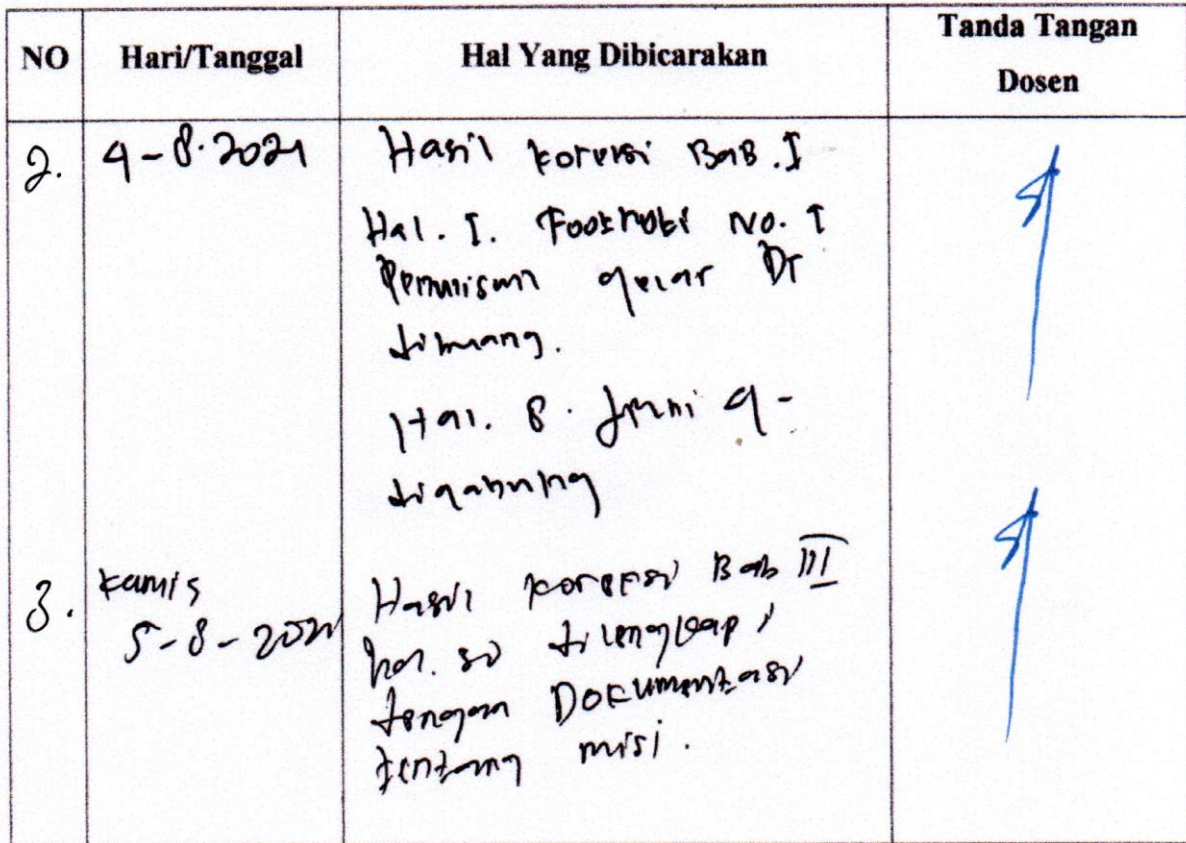 NO Hari/Tanggal Hal Yang Dibicarakan Tanda Tangan
Dosen
2. 4-8-2021 Hasil koreksi Bab. I
Hal. I. Footnote No. I
Penulisan gelar Dr
dibuang.
Hal. 8.
digabung
3. Kamis Hasil koreksi Bab III
5-8-2021 hal. 50 dilengkapi
dengan Dokumentasi
tentang misi.